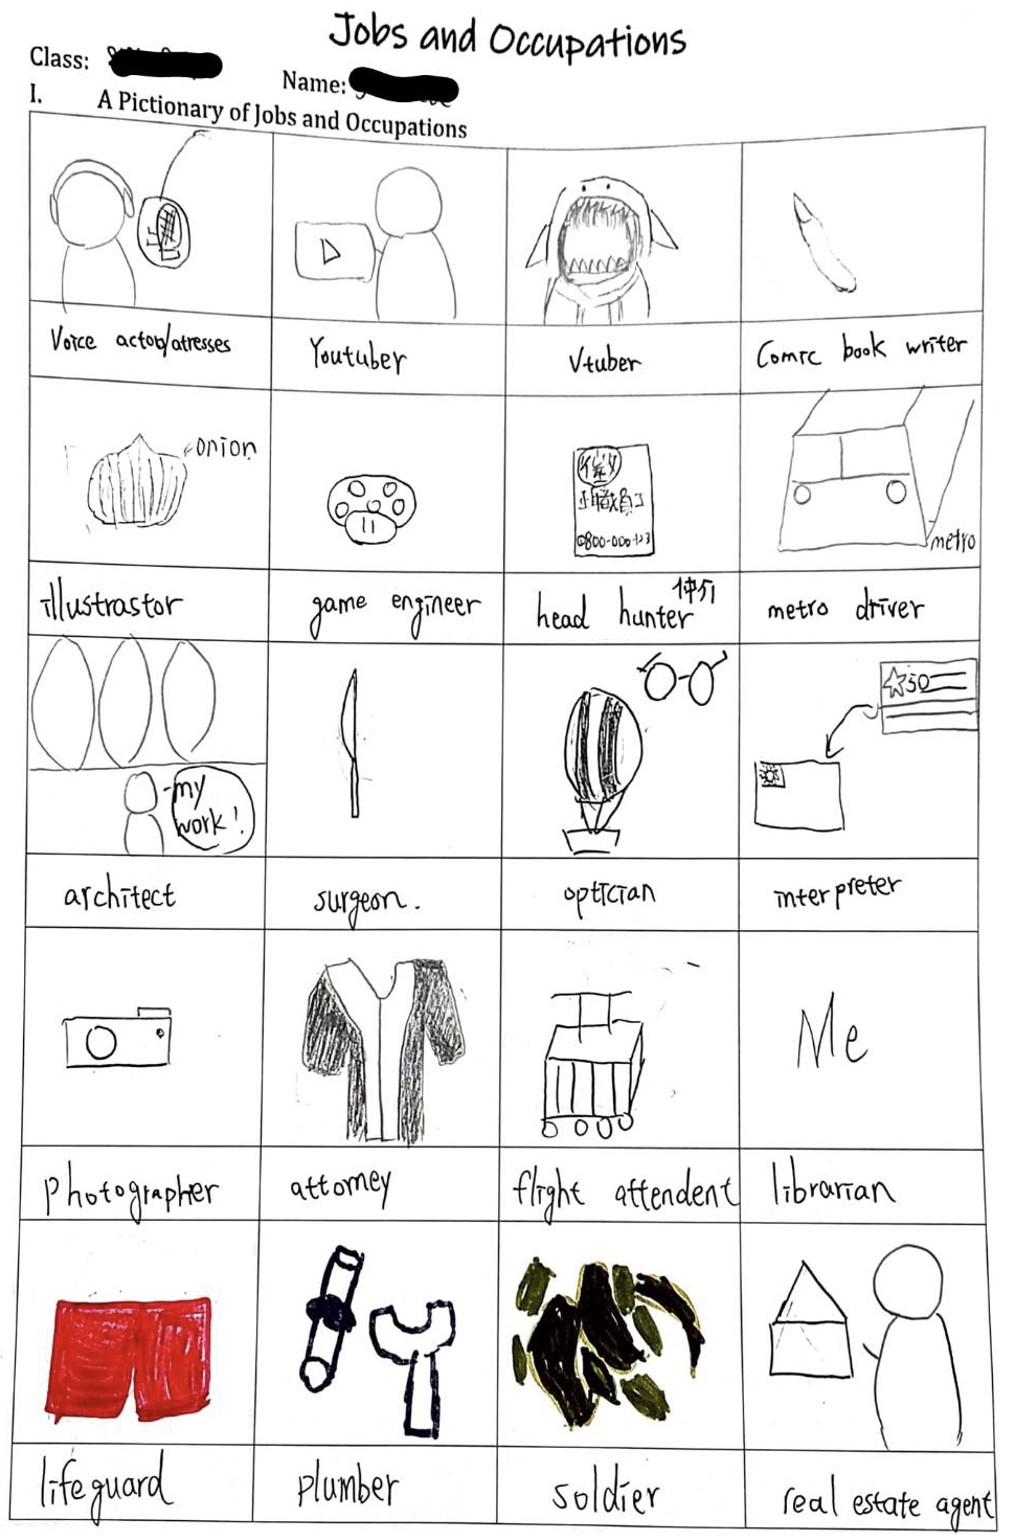 Jobs and Occupations
Class:
Name:
I. A Pictionary of Jobs and Occupations
Voice actors/atresses
Youtuber
Vtuber
Comic book writer
onion
徵
職員
0800-000-123
metro
illustrastor
game engineer
head hunter 仲介
metro driver
my
work!
50
architect
surgeon.
optician
interpreter
Me
photographer
attorney
flight attendent
librarian
lifeguard
plumber
soldier
real estate agent